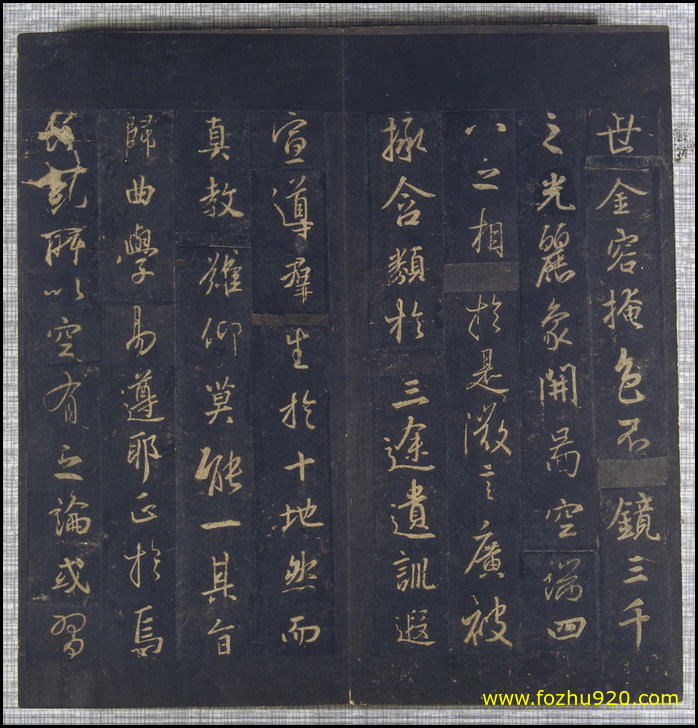 世金容掩色不鏡三千
之光麗象開啚空端四
八之相於是微言廣被
拯含類於三途遺訓遐
宣導羣生於十地然而
真教難仰莫能一其旨
歸曲學易遵耶正於焉
所以空有之論或習
www.fozhu920.com